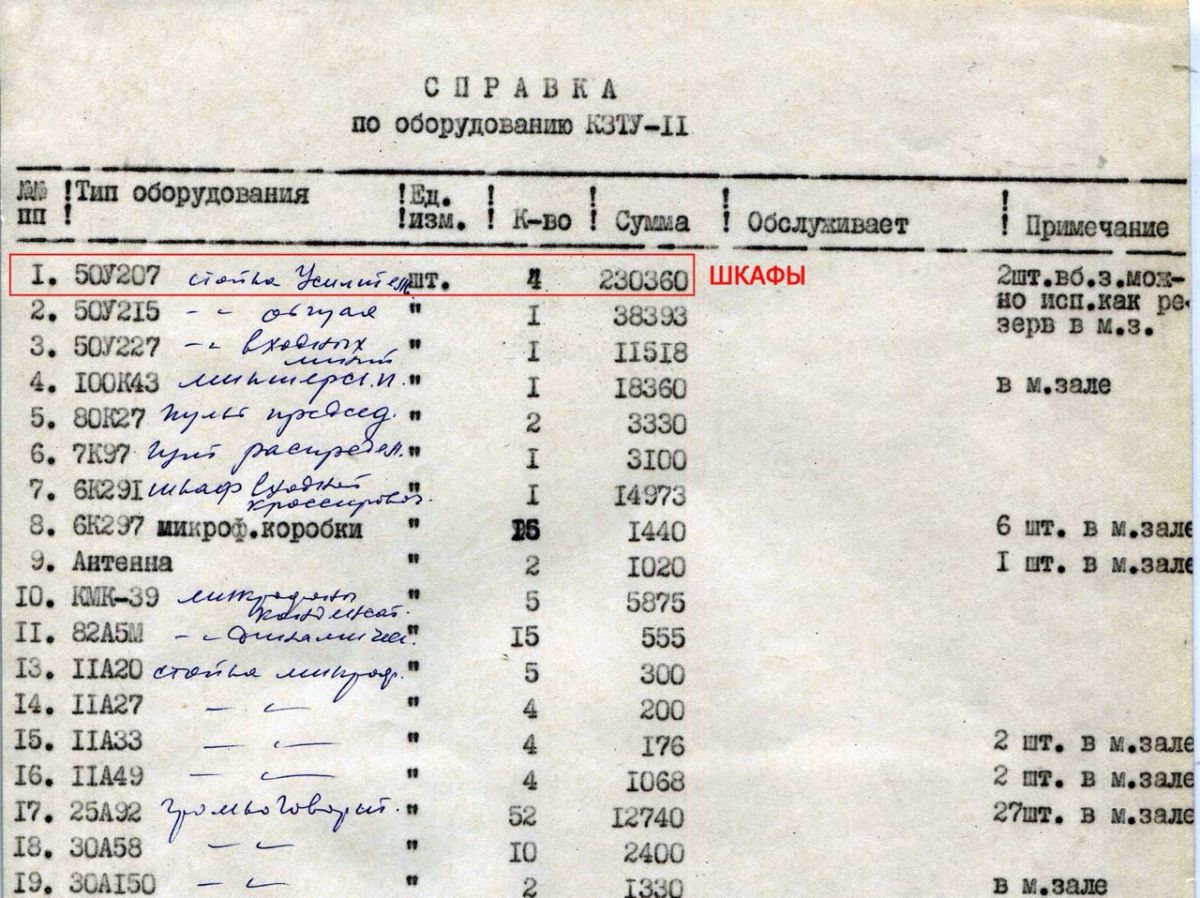 СПРАВКА
по оборудованию КЗТУ-II
№№ пп ! Тип оборудования ! Ед. изм. ! К-во ! Сумма ! Обслуживает ! Примечание
I. 50У207 стойка Усилител. шт. 4 230360 ШКАФЫ 2шт.вб.з.мож-
но исп.как ре-
2. 50У215 -"- общая " I 38393 зерв в м.з.
3. 50У227 -"- входных линий " I II5I8
4. I00К43 " I I8360 в м.зале
5. 80К27 пульт председ. " 2 3330
6. 7К97 распредел. " I 3I00
7. 6К29I шкаф входной кроссировоч. " I I4973
8. 6К297 микроф.коробки " I6 I440 6 шт. в м.зале
9. Антенна " 2 I020 I шт. в м.зале
I0. КМК-39 микрофоны конденсат. " 5 5875
II. 82А5М -"- Динамичес. " I5 555
I3. IIА20 стойка микроф. " 5 300
I4. IIА27 -"- " 4 200
I5. IIА33 -"- " 4 I76 2 шт. в м.зале
I6. IIА49 -"- " 4 I068 2 шт. в м.зале
I7. 25А92 громкоговорит. " 52 I2740 27шт. в м.зале
I8. 30А58 -"- " I0 2400
I9. 30АI50 -"- " 2 I330 в м.зале